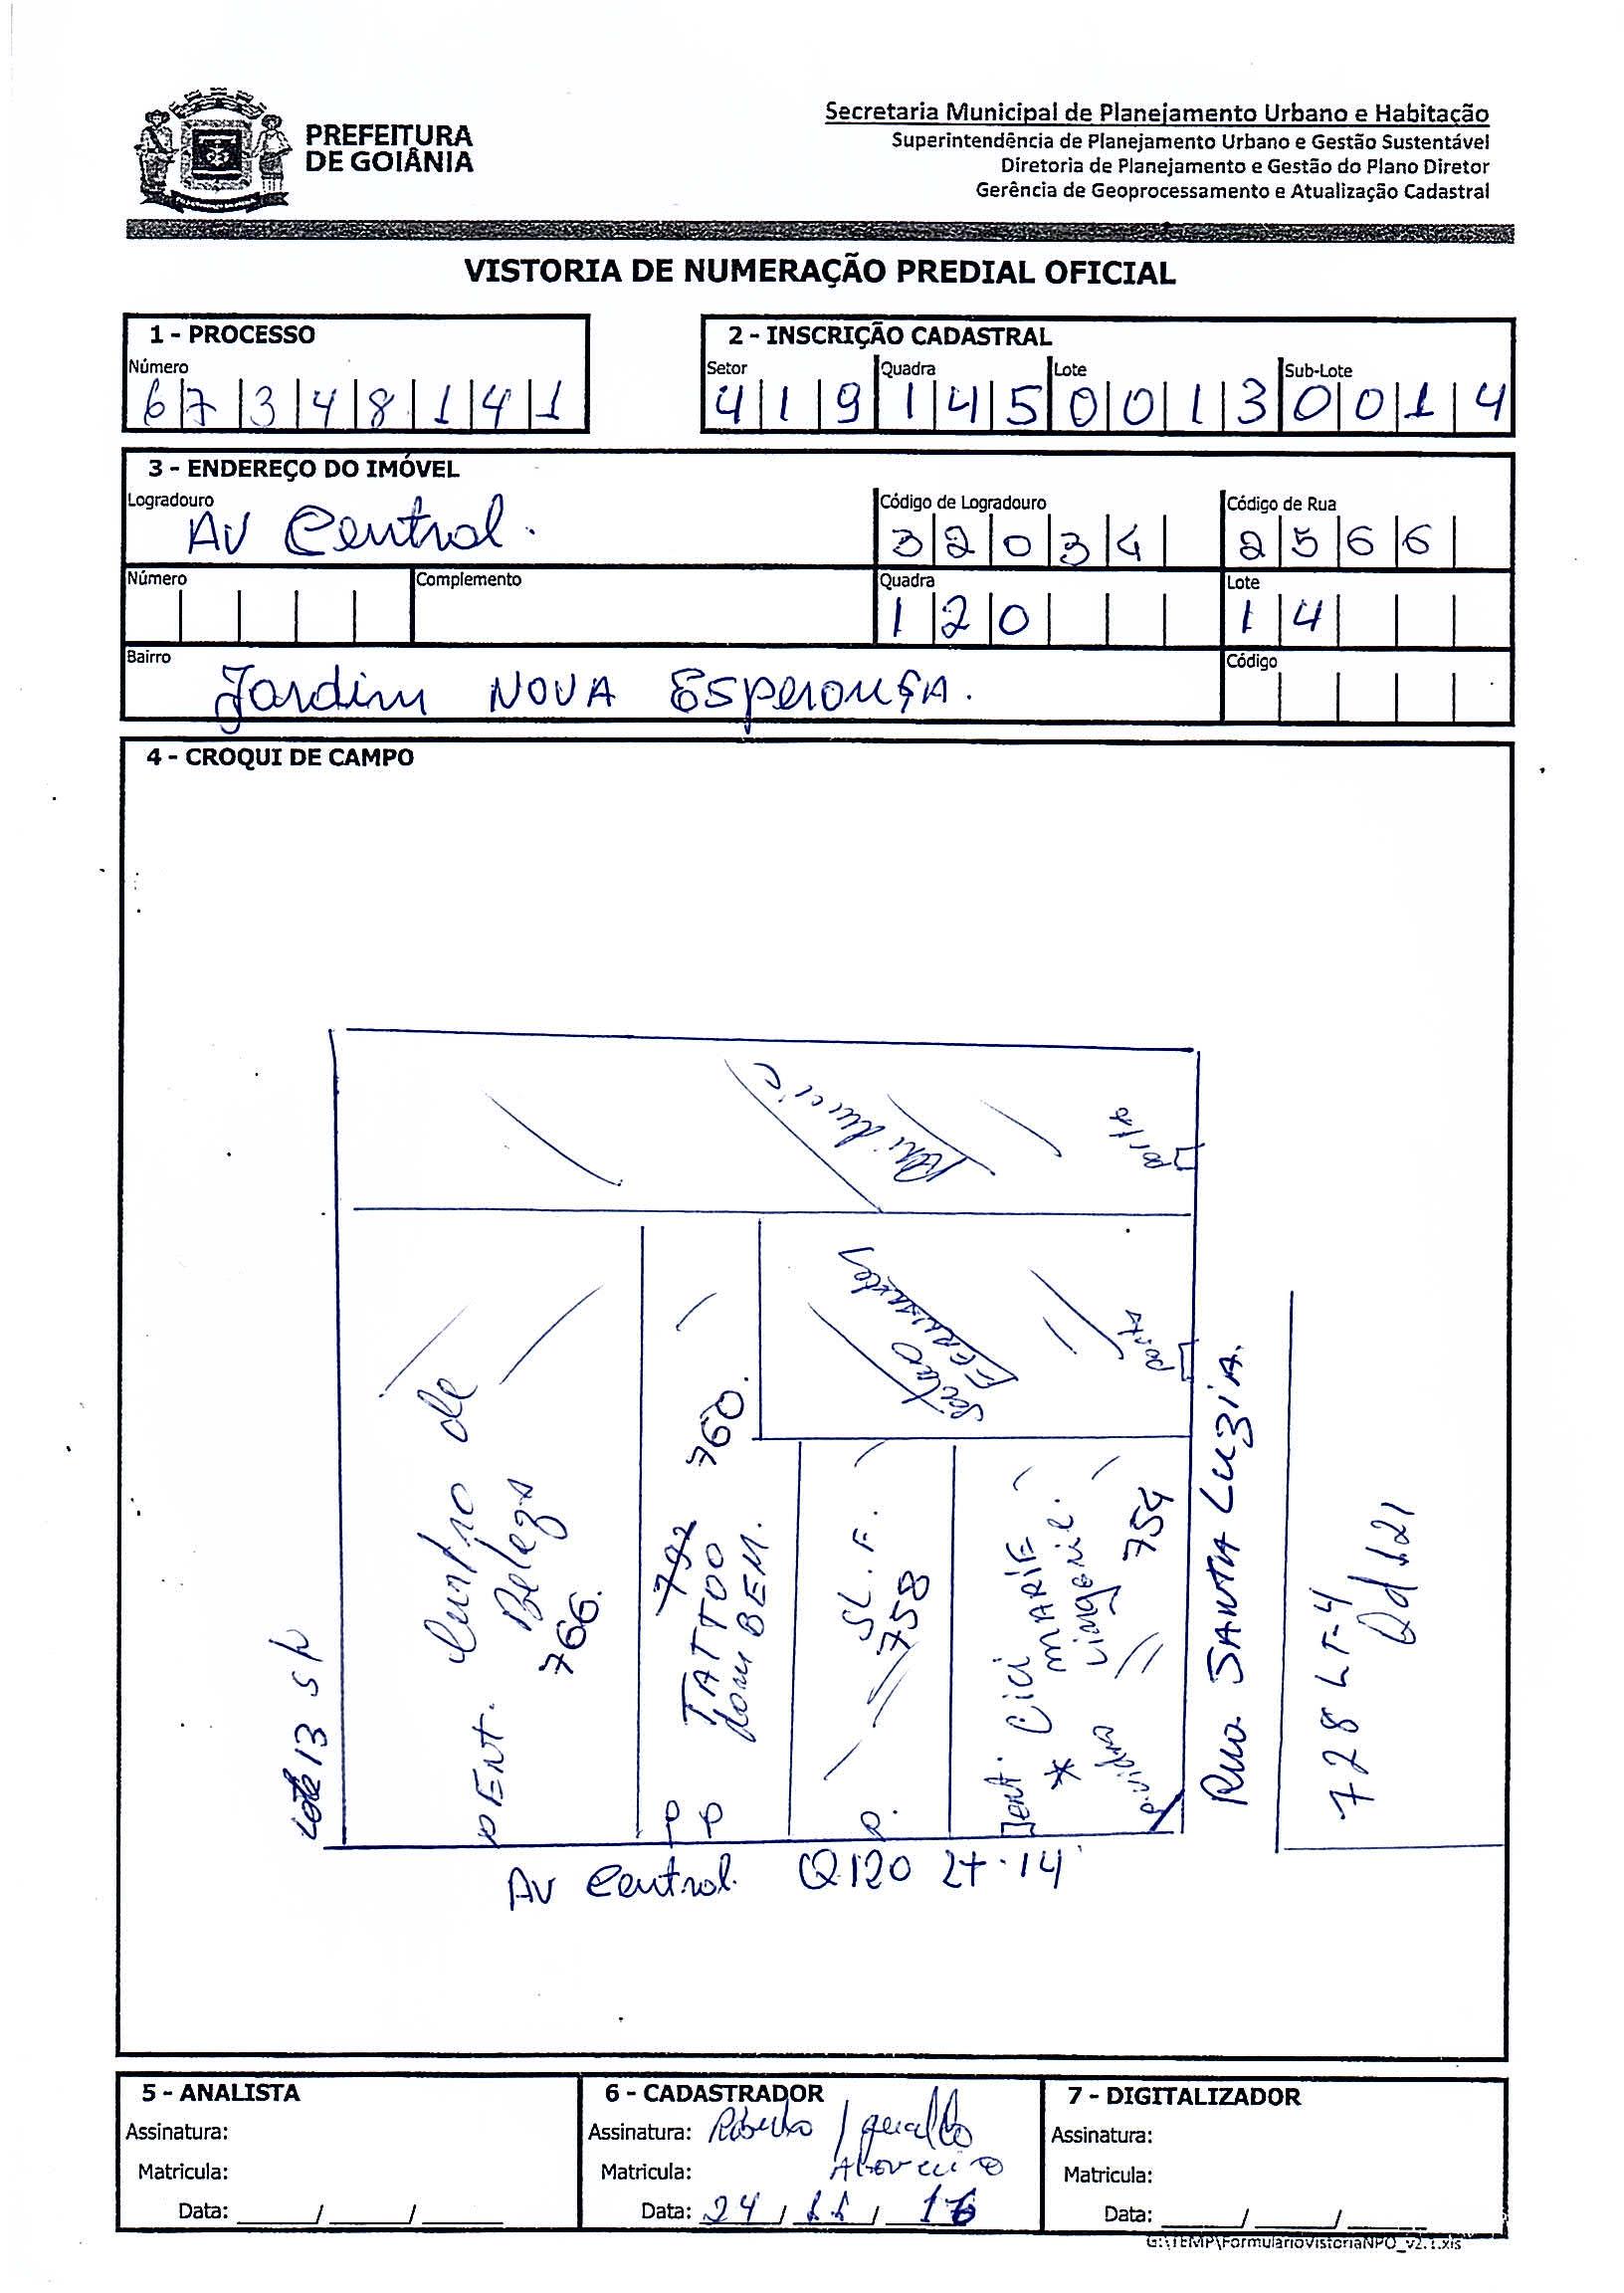 PREFEITURA
DE GOIÂNIA
Secretaria Municipal de Planejamento Urbano e Habitação
Superintendência de Planejamento Urbano e Gestão Sustentável
Diretoria de Planejamento e Gestão do Plano Diretor
Gerência de Geoprocessamento e Atualização Cadastral
VISTORIA DE NUMERAÇÃO PREDIAL OFICIAL
1 - PROCESSO
Número
6 7 3 4 8 1 4 1
2 - INSCRIÇÃO CADASTRAL
Setor Quadra Lote Sub-Lote
4 1 9 1 4 5 0 0 1 3 0 0 1 4
3 - ENDEREÇO DO IMÓVEL
Logradouro Código de Logradouro Código de Rua
Av Central. 3 2 0 3 4 2 5 6 6
Número Complemento Quadra Lote
1 2 0 1 4
Bairro Código
Jardim NOVA EsperANÇA.
4 - CROQUI DE CAMPO
porta
porta
Centro de
Beleza
766.
Ent.
lote 13 s/n
760.
792
TATTOO
BEM.
SL. F.
758
Cici
MARIE
754
* p. vidro
ent.
P P
P.
Rua SANTA LUZIA.
728 LT-4
Qd 121
Av Central. Q120 LT.14
5 - ANALISTA
Assinatura:
Matricula:
Data: / /
6 - CADASTRADOR
Assinatura: Roberto / Geraldo
Matricula:
Data: 24 / 11 / 16
7 - DIGITALIZADOR
Assinatura:
Matricula:
Data: / /
G:\TEMP\FormularioVistoriaNPO_v2.1.xls